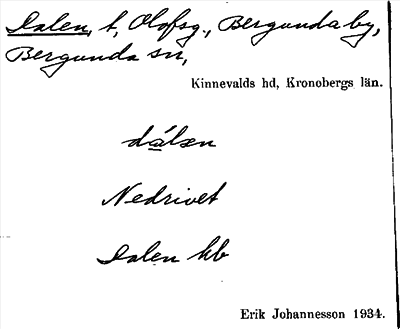 Dalen, t, Olofsg., Bergunda by,
Bergunda sn,
Kinnevalds hd, Kronobergs län.
dálɜn
Nedrivet
Dalen hb
Erik Johannesson 1934.